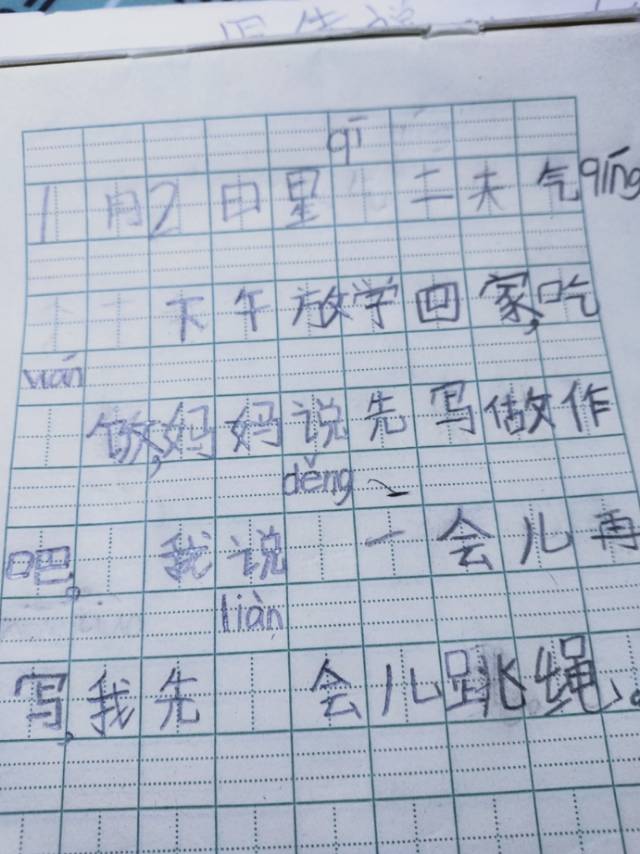 qī
1月2日星 二天气qíng
下午放学回家,吃
wán
饭,妈妈说先写做作
děng
吧。我说 一会儿再
liàn
写,我先 会儿跳绳。